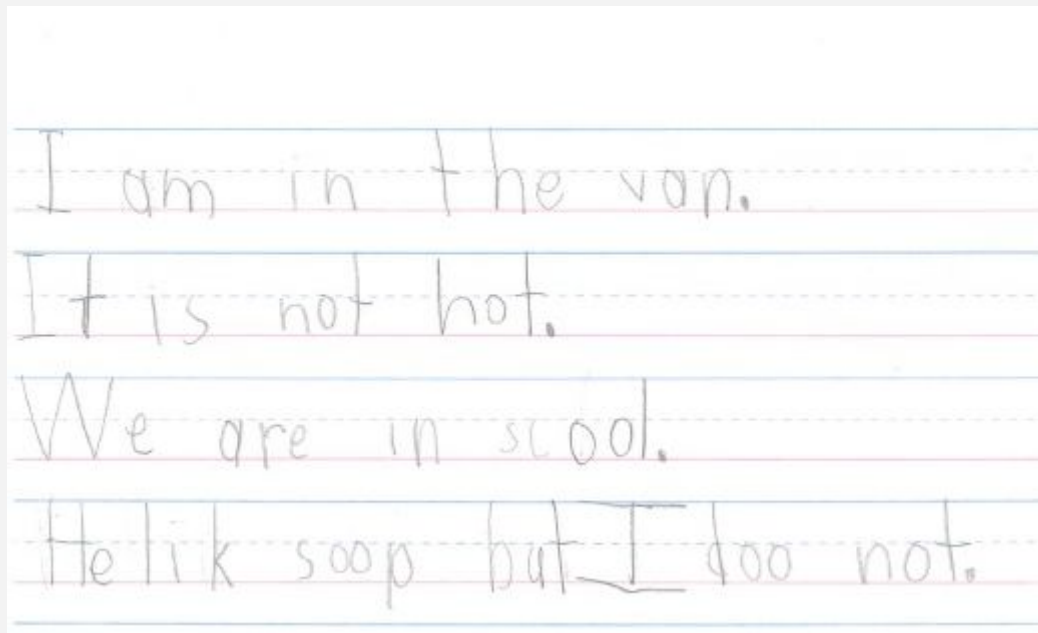 I am in the van.
It is not hot.
We are in scool.
He lik soop but I doo not.